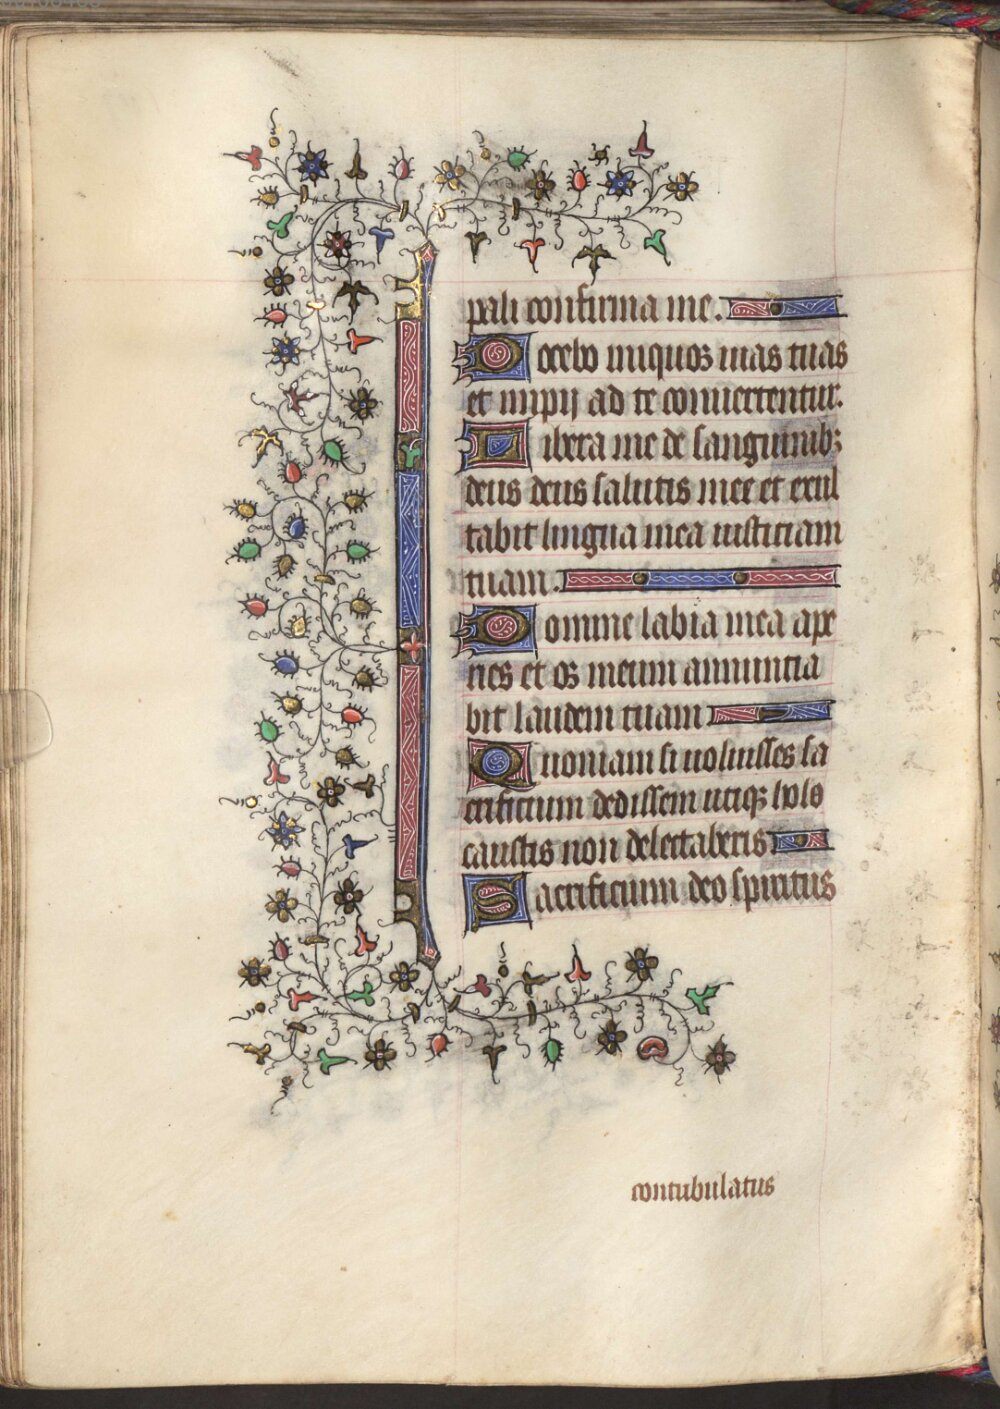 pali confirma me.
Docebo iniquos uias tuas
et impij ad te conuertentur.
Libera me de sanguinibꝫ
deus deus salutis mee et exul
tabit lingua mea iusticiam
tuam.
Domine labia mea ape
ries et os meum annuncia
bit laudem tuam
Quoniam si uoluisses sa
crificium dedissem utiqꝫ holo
caustis non delectaberis
Sacrificium deo spiritus
contubulatus